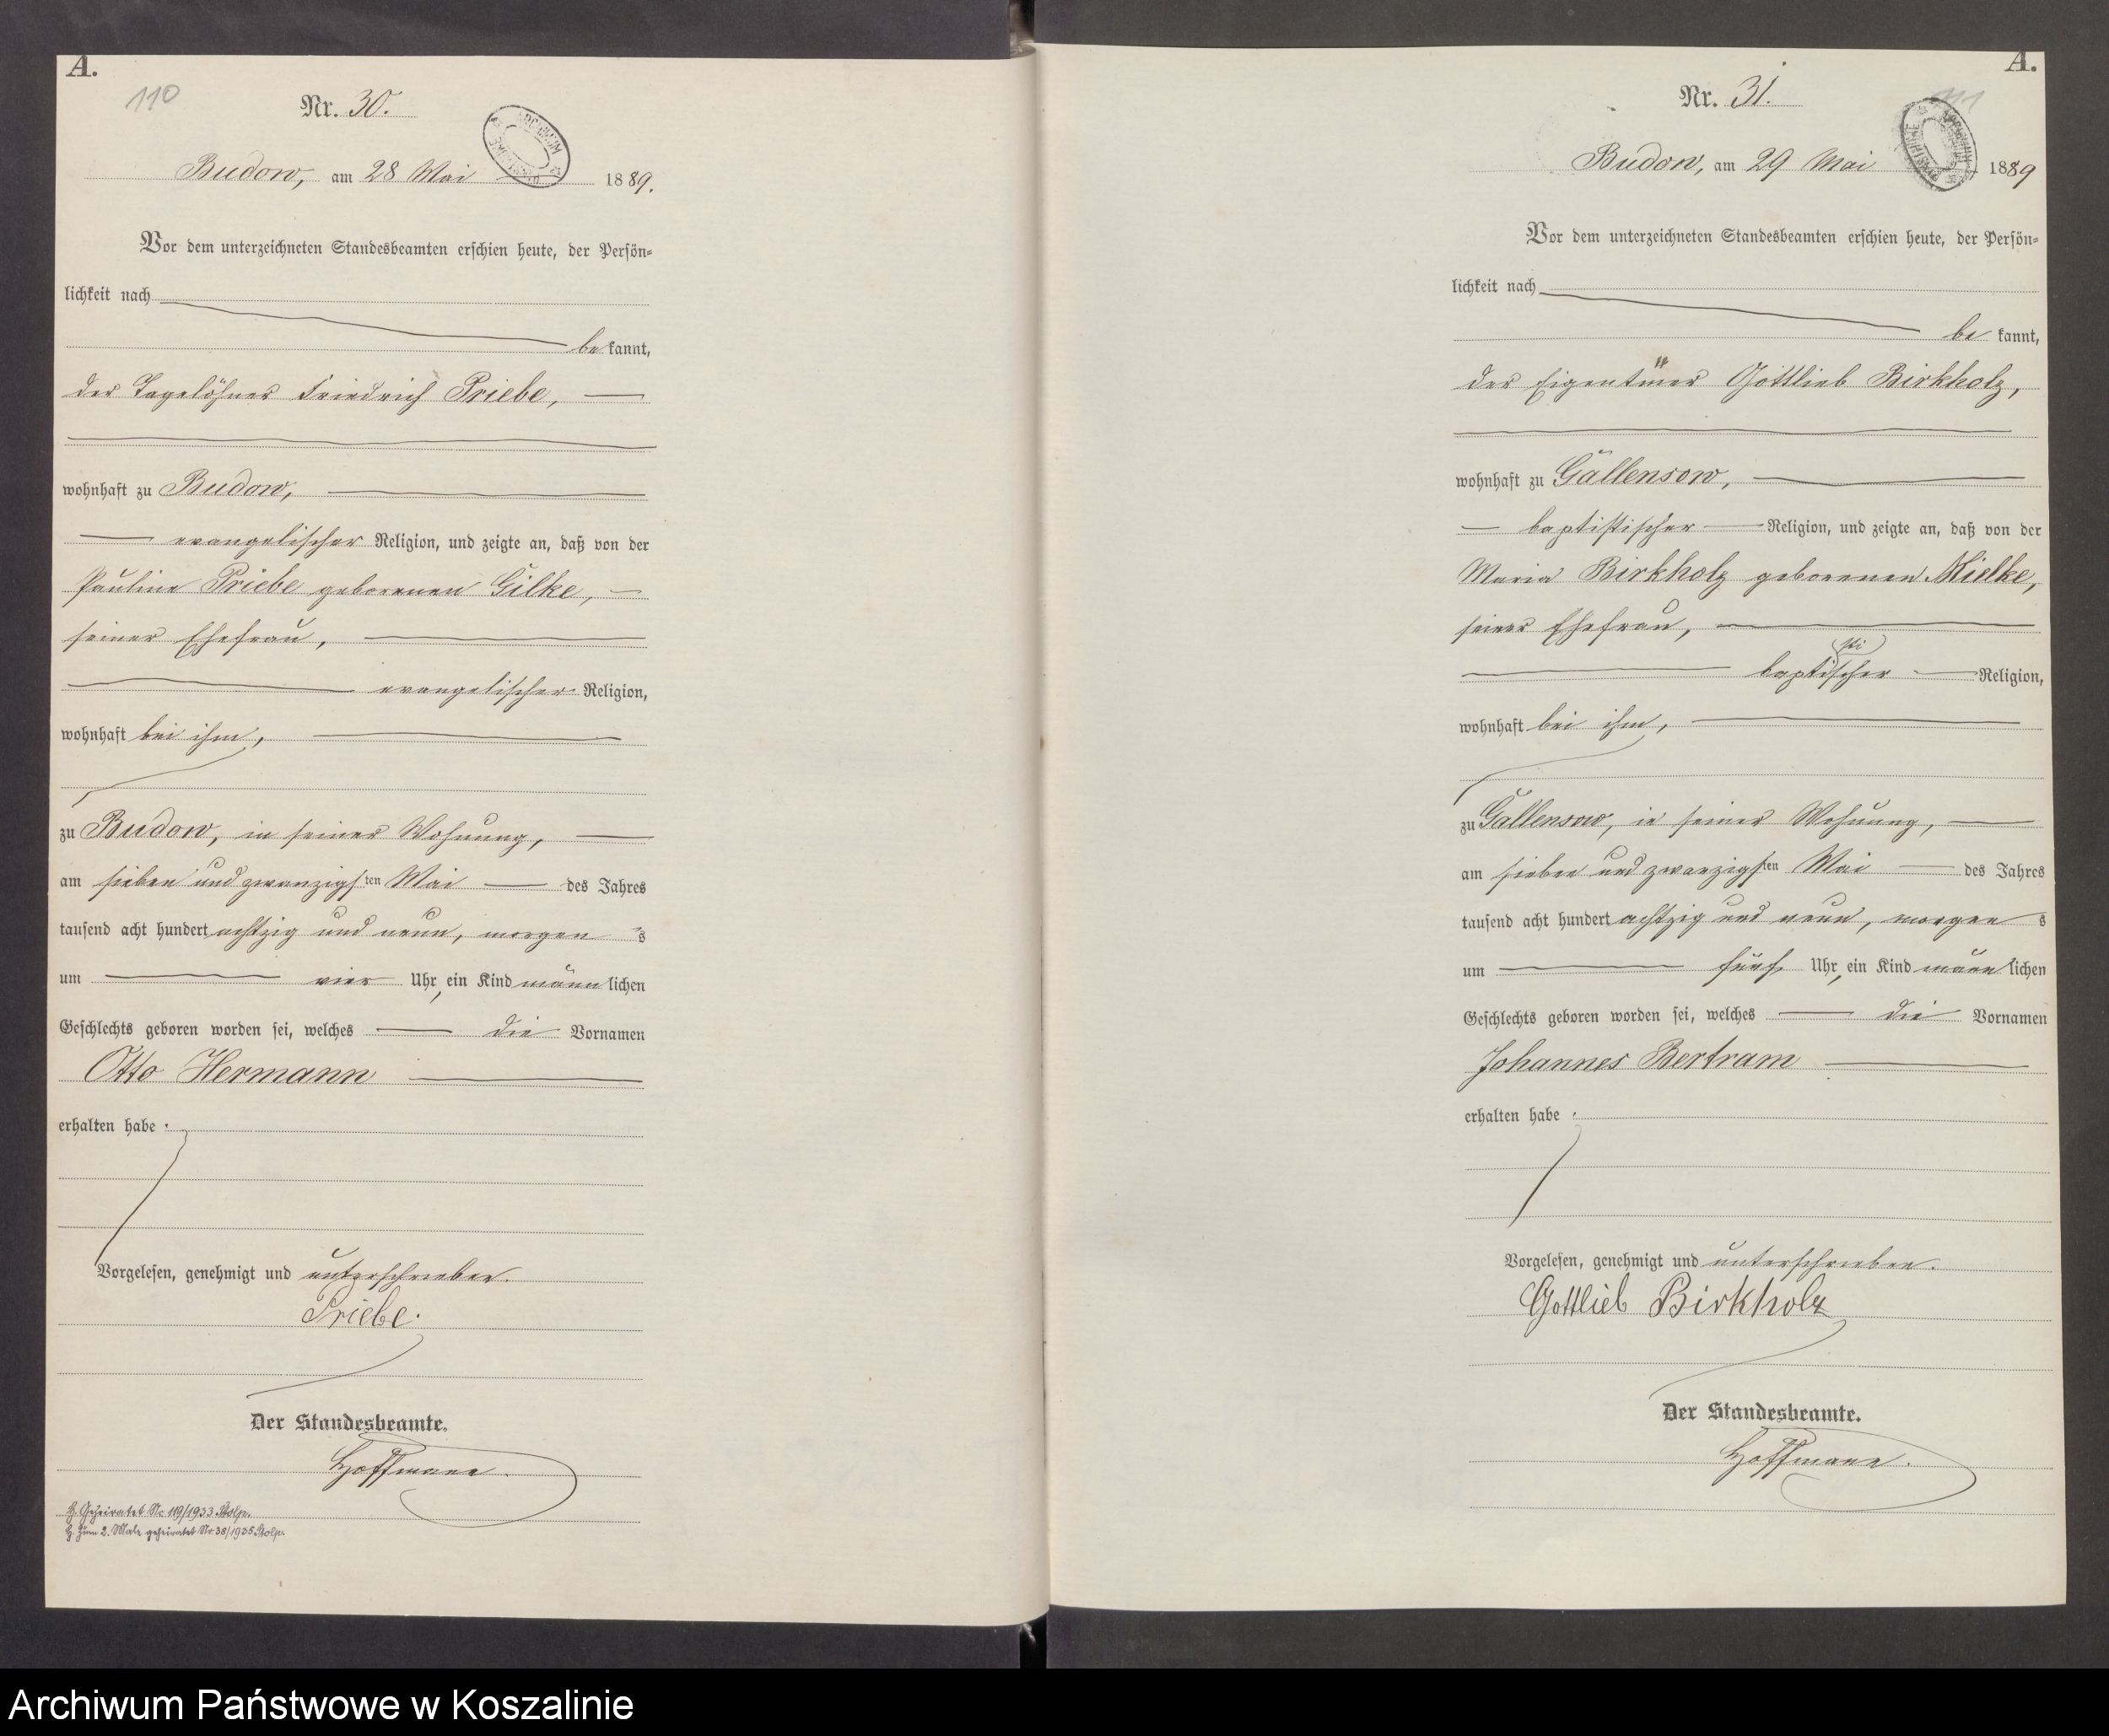 A.
110
Nr. 30.
Budow, am 28 Mai 1889.
Vor dem unterzeichneten Standesbeamten erschien heute, der Persön=
lichkeit nach
be kannt,
der Tagelöhner Friedrich Priebe,
wohnhaft zu Budow,
evangelischer Religion, und zeigte an, daß von der
Pauline Priebe geborenen Gilke,
seiner Ehefrau,
evangelischer Religion,
wohnhaft bei ihm,
zu Budow, in seiner Wohnung,
am sieben und zwanzigsten Mai des Jahres
tausend acht hundert achtzig und neun, morgens
um vier Uhr, ein Kind männlichen
Geschlechts geboren worden sei, welches die Vornamen
Otto Hermann
erhalten habe.
Vorgelesen, genehmigt und unterschrieben.
Priebe.
Der Standesbeamte.
Hoffmann.
H. Geheiratet Nr. 119/1933 Stolp.
H. Zum 2. Male geheiratet Nr. 38/1935 Stolp.
A.
111
Nr. 31.
Budow, am 29 Mai 1889
Vor dem unterzeichneten Standesbeamten erschien heute, der Persön=
lichkeit nach
be kannt,
der Eigentümer Gottlieb Birkholz,
wohnhaft zu Gallensow,
baptistischer Religion, und zeigte an, daß von der
Maria Birkholz geborenen Mielke,
seiner Ehefrau,
baptistischer Religion,
wohnhaft bei ihm,
zu Gallensow, in seiner Wohnung,
am sieben und zwanzigsten Mai des Jahres
tausend acht hundert achtzig und neun, morgens
um fünf Uhr, ein Kind männlichen
Geschlechts geboren worden sei, welches die Vornamen
Johannes Bertram
erhalten habe.
Vorgelesen, genehmigt und unterschrieben.
Gottlieb Birkholz
Der Standesbeamte.
Hoffmann.
Archiwum Państwowe w Koszalinie